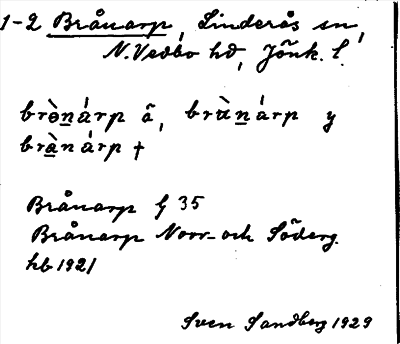 1-2 Brånarp, Linderås sn,
N. Vedbo hd, Jönk. l.
brò̱nárp ä, brànárp y
brànárp †
Brånarp G 35
Brånarp Norr- och Söderg.
hb 1921
Sven Sandberg 1929